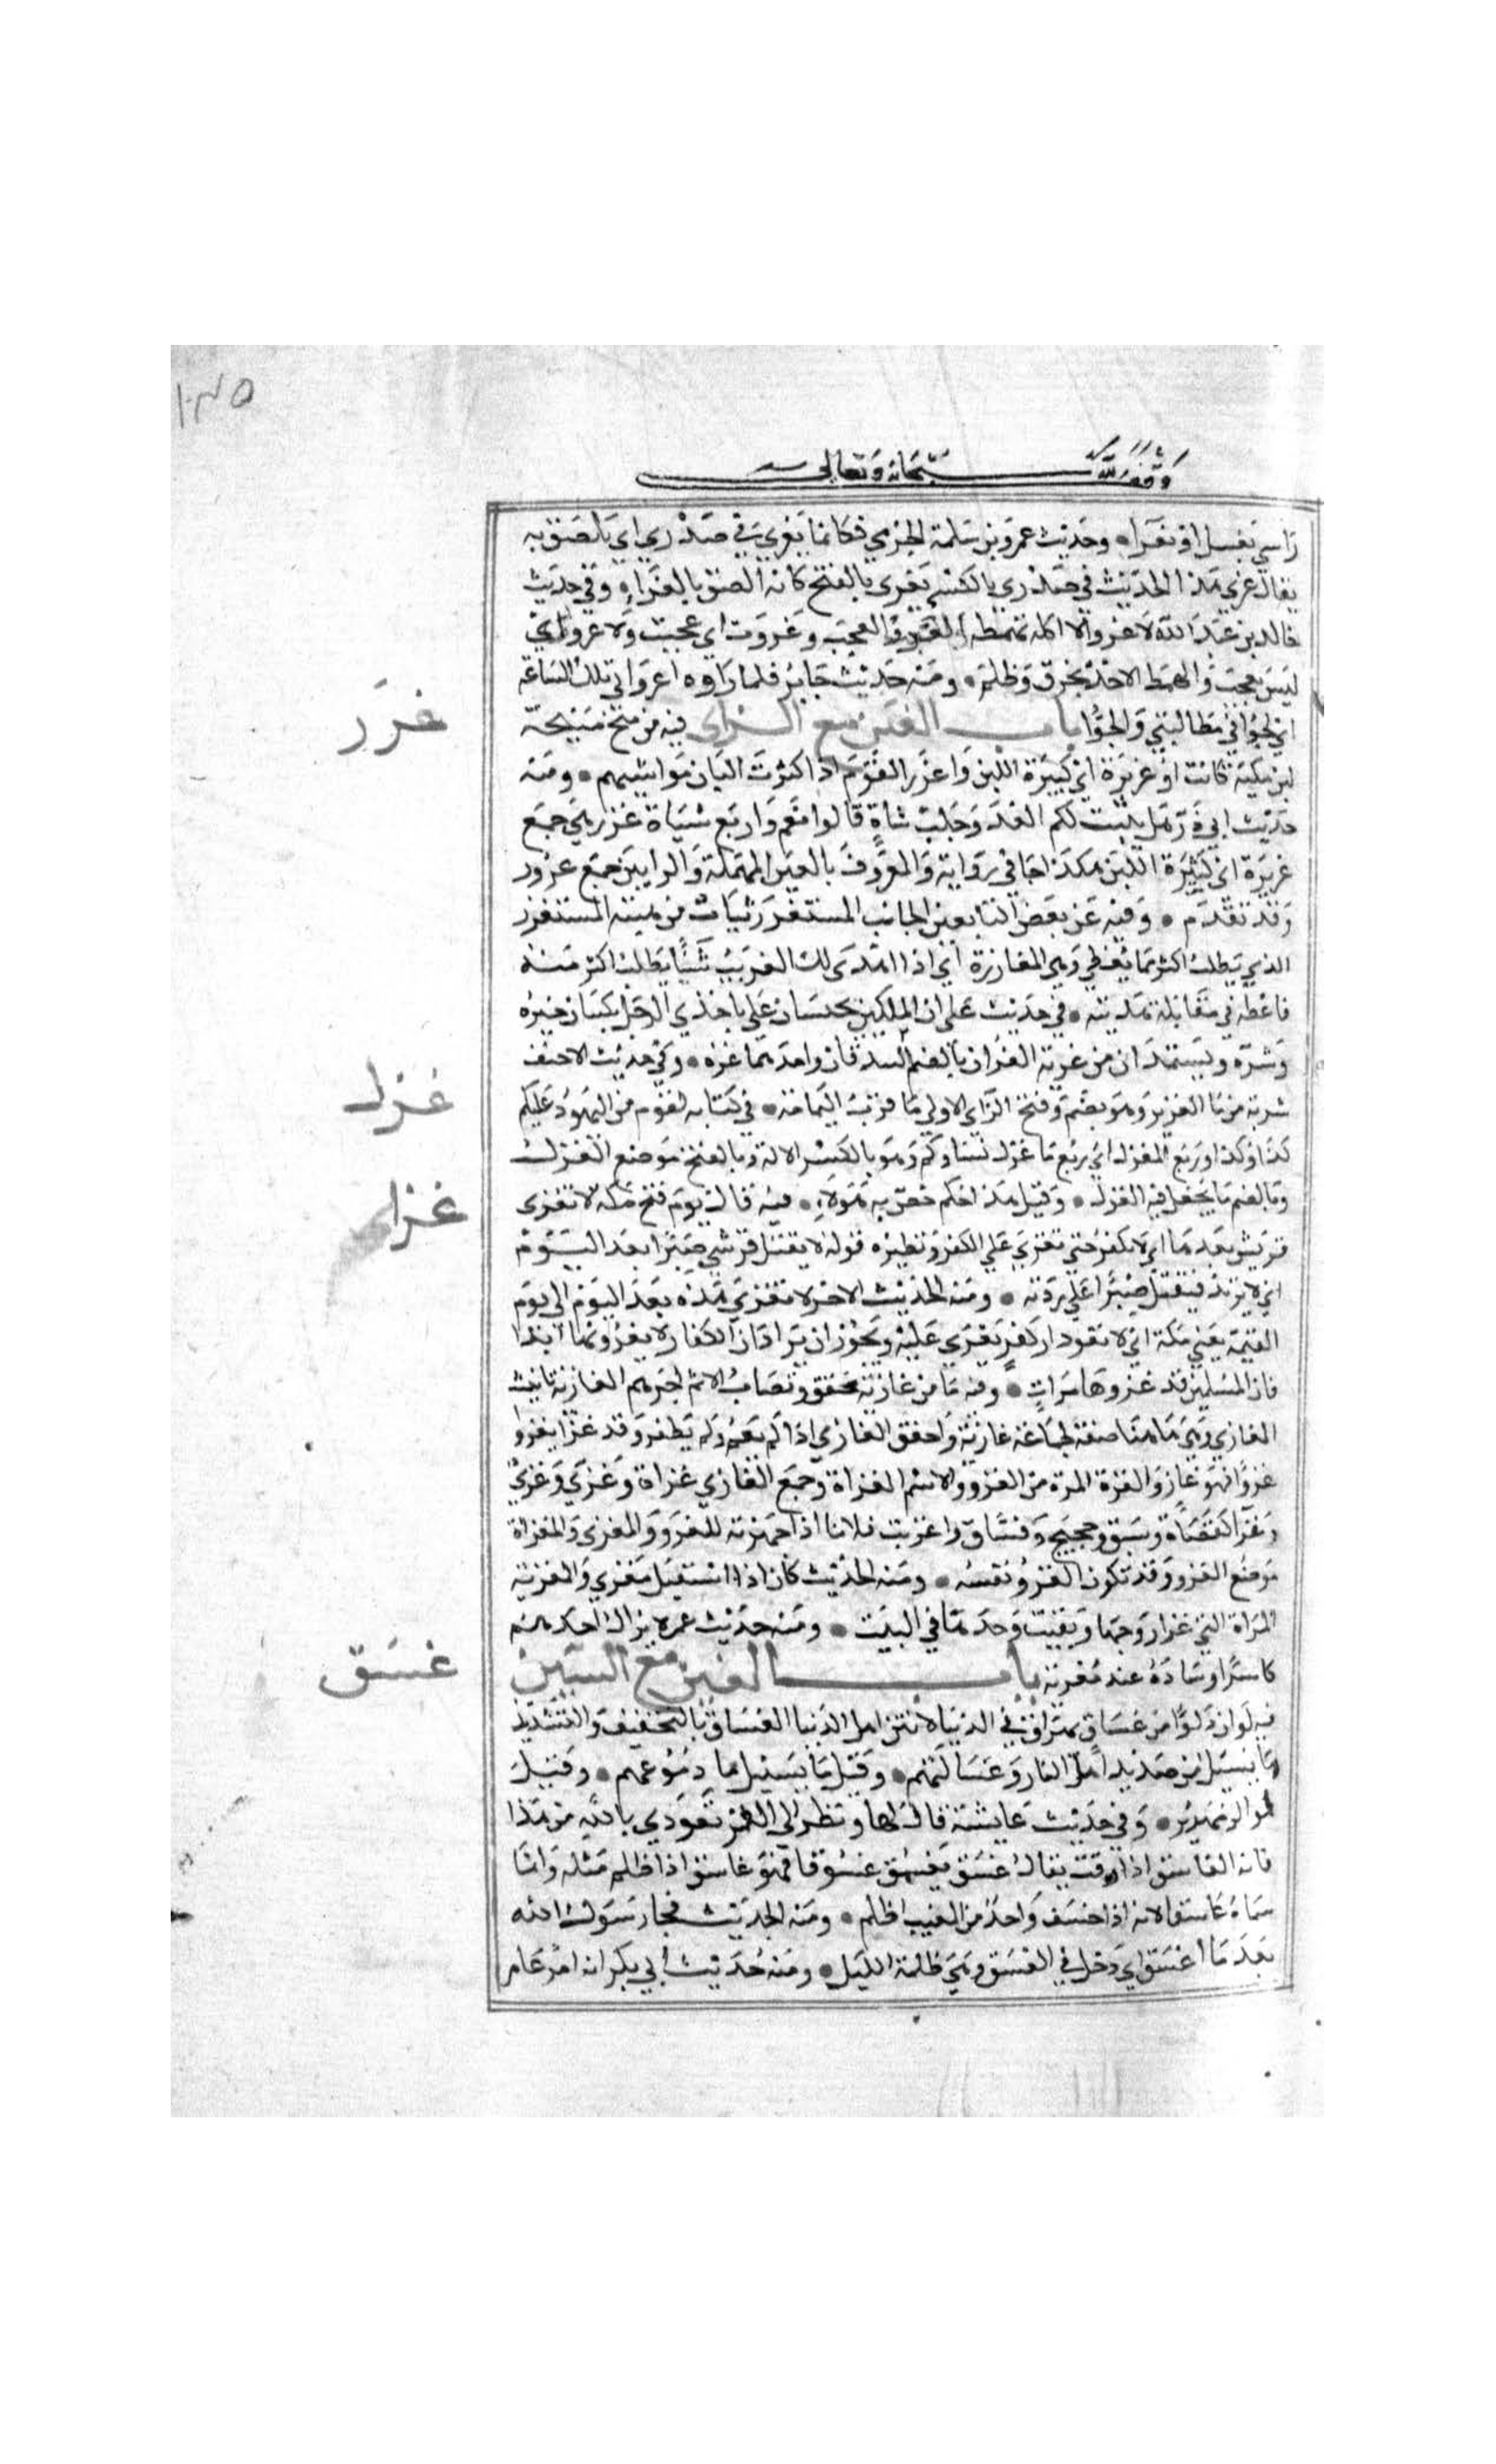 ١٠٣٥
وقف لله سبحانه وتعالى
راسي بغسل او بغراء وحديث عمرو بن سلمة الجرمي فكانما يغري في صدري اي يلصق به
يقال غري هذا الحديث في صدري بالكسر يغرى بالفتح كانه الصق بالغراء وفي حديث
خالد بن عبد الله لا غرو الا اكلة بهمطة الغرو العجب وغروت اي عجبت ولا غرو اي
ليس بعجب والهمط الاخذ بخرق وظلم ومنه حديث جابر فلما راوه اغروا بي تلك الساعة
اي لجوا في مطالبتي والحوا باب الغين مع الزاي فيه من منح منيحة
لبن بكية كانت او غزيرة اي كثيرة اللبن واغزر القوم اذا كثرت البان مواشيهم ومنه
حديث ابي ذر هل يثبت لكم العدو حلب شاة قالوا نعم واربع شياه غزر هي جمع
غزيرة اي كثيرة اللبن هكذا جا في رواية والمعروف بالعين المهملة والزايين جمع عزوز
وقد تقدم وفيه عن بعض التابعين الجانب المستغزر يثاب من هبته المستغزر
الذي يطلب اكثر مما يعطي وهي المغازرة اي اذا اهدى لك الغريب شيئا يطلب اكثر منه
فاعطه في مقابلة هديته في حديث علي ان الملكين يجلسان على ناجذي الرجل يكتبان خيره
وشره ويستمدان من غزيه الغزان بالضم الشدقان واحدهما غز وفي حديث الاحنف
شربة من ما الغزيز وهو بضم وفتح الزاي الاولى ما قرب اليمامة في كتابه لقوم من اليهود عليكم
كذا وكذا وربع المغزل اي ربع ما غزل نساوكم وهو بالكسر الالة وبالفتح موضع الغزل
وبالضم ما يجعل فيه الغزل وقيل هذا حكم خص به هؤلاء فيه قال يوم فتح مكة لا تغزى
قريش بعدها اي لا تكفر حتى تغزى على الكفر ونظيره قوله لا يقتل قرشي صبرا بعد اليوم
اي لا يرتد فيقتل صبرا على ردته ومنه الحديث الاخر لا تغزى هذه بعد اليوم الى يوم
القيمة يعني مكة اي لا تعود دار كفر يغزى عليه ويجوز ان يراد ان الكفار لا يغزونها ابدا
فان المسلمين قد غزوها مرات وفيه ما من غازية تخفق وتصاب الا تم اجرهم الغازية تانيث
الغازي وهي هاهنا صفة لجماعة غازية واخفق الغازي اذا لم يغنم ولم يظفر وقد غزا يغزوا
غزوا فهو غاز والغزوة المرة من الغزو والاسم الغزاة وجمع الغازي غزاة وغزى وغزي
وغزا كقضاة وسبق وحجيج وفساق واغزيت فلانا اذا جهزته للغزو والمغزى والمغزاة
موضع الغزو وقد تكون الغزو نفسه ومنه الحديث كان اذا استقبل مغزى والمغزية
المراة التي غزا زوجها وبقيت وحدها في البيت ومنه حديث عمر لا يزال احدهم
كاسرا وسادة عند مغزية باب الغين مع السين
فيه لو ان دلوا من غساق يهراق في الدنيا لانتن اهل الدنيا الغساق بالتخفيف والتشديد
ما يسيل من صديد اهل النار وغسالتهم وقيل ما يسيل من دموعهم وقيل
هو الزمهرير وفي حديث عايشة قال لها ونظر الى القمر تعوذي بالله من هذا
فانه الغاسق اذا وقب يقال غسق يغسق غسوقا فهو غاسق اذا اظلم مثله وانما
سماه غاسقا لانه اذا خسف واخذ من المغيب اظلم ومنه الحديث فجا رسول الله
بعد ما اغسق اي دخل في الغسق وهي ظلمة الليل ومنه حديث ابي بكر انه امر عامر
غزر
غزل
غزا
غسق